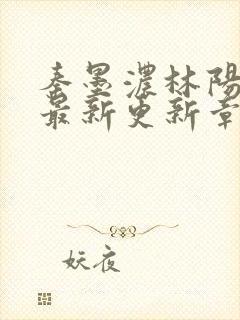 秦墨濃林陽
最新更新章
妖夜